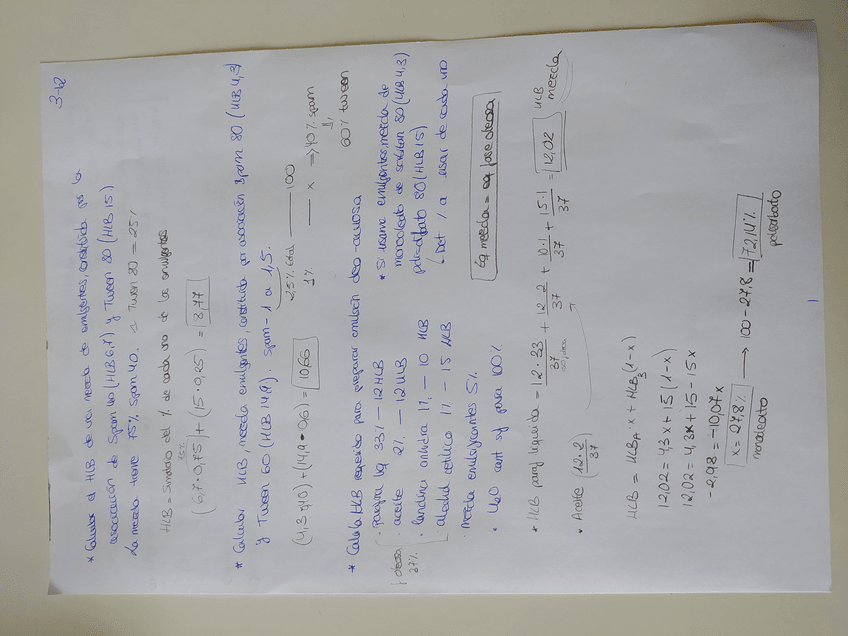 3-12
* Calcular el HLB de una mezcla de emulgentes, constituida por la
asociación de Spam 40 (HLB 6,7) y Tween 80 (HLB 15)
La mezcla tiene 75% Spam 40. → Tween 80 = 25%
HLB = Sumatorio del % de cada uno de los emulgentes
75%
(6,7 · 0,75) + (15 · 0,25) = 8,77
* Calcular HLB, mezcla emulgentes, constituida por asociación Spam 80 (HLB 4,3)
y Tween 60 (HLB 14,9). Spam - 1 a 1,5.
2,5% total —— 100
1% —— x ⇒ 40% spam
60% tween
(4,3 · 0,40) + (14,9 · 0,6) = 10,66
* Calcula HLB requerido para preparar emulsión oleo-acuosa
· parafina liq 33% — 12 HLB
· aceite 2% — 12 HLB
· lanolina anhidra 1% — 10 HLB
· alcohol cetílico 1% — 15 HLB
f. oleosa
37%
· mezcla emulgentes 5%
· H2O cant sf para 100%
* Si usamos emulgentes, mezcla de
monooleato de sorbitan 80 (HLB 4,3)
polisorbato 80 (HLB 15)
↳ Det % a usar de cada uno
Eq mezcla = eq fase oleosa
* HLB paraf liquida = 12 · 33/37 + 12 · 2/37 + 10 · 1/37 + 15 · 1/37 = 12,02 HLB mezcla
· Aceite (12 · 2/37)
HLB = HLBA · x + HLBB (1-x)
12,02 = 4,3x + 15 (1-x)
12,02 = 4,3x + 15 - 15x
-2,98 = -10,07x
x = 27,8% → 100 - 27,8 = 72,14%
monooleato polisorbato